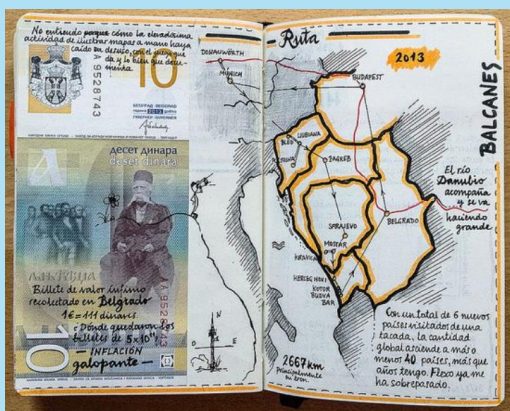 No entiendo porque cómo la elevadísima
actividad de ilustrar mapas a mano haya
caído en desuso, con el juego que
da y lo bien que docu-
menta.
10
A 9528743
БЕОГРАД BEOGRAD
2013
десет динара
deset dinara
Billete de valor ínfimo
recolectado en Belgrado
1€=111 dinares
¿Dónde quedaron los
billetes de 5x10
— INFLACIÓN
galopante —
10
A 9528743
Ruta
2013
BALCANES
DONAUWÖRTH
MUNICH
BUDAPEST
LJUBLJANA
BLED
ZAGREB
BELGRADO
SARAJEVO
MOSTAR
KRAVICA
HERCEG NOVI
KOTOR
BUDVA
BAR
El río
Danubio
acompaña
y se va
haciendo
grande
N
2667km
Principalmente
en tren
Con un total de 6 nuevos
países visitados de una
tacada, la cantidad
global asciende a más o
menos 40 países, más que
años tengo. Flexo ya me
ha sobrepasado.